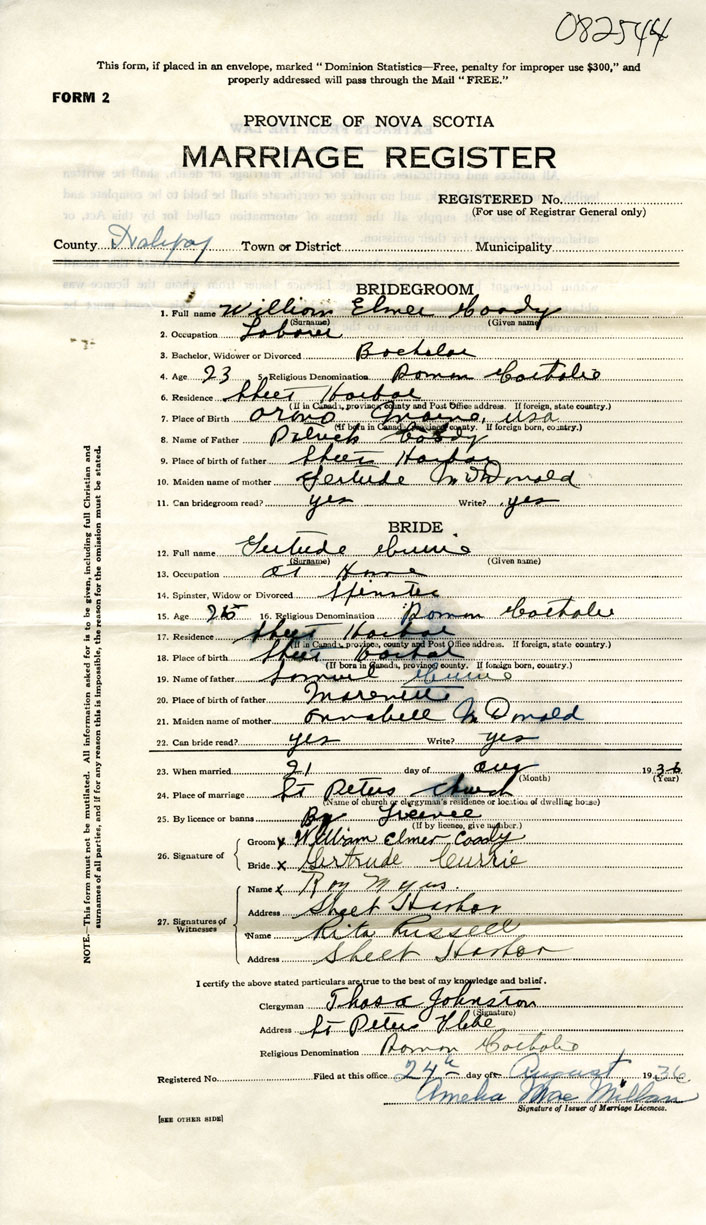 082544
This form, if placed in an envelope, marked "Dominion Statistics—Free, penalty for improper use $300," and
properly addressed will pass through the Mail "FREE."
FORM 2
PROVINCE OF NOVA SCOTIA
MARRIAGE REGISTER
REGISTERED No.
(For use of Registrar General only)
County Halifax Town or District Municipality
BRIDEGROOM
1. Full name William Elmer Coady
(Surname) (Given name)
2. Occupation Laborer
3. Bachelor, Widower or Divorced Bachelor
4. Age 23 5. Religious Denomination Roman Catholic
6. Residence Sheet Harbor
(If in Canada, province, county and Post Office address. If foreign, state country.)
7. Place of Birth Orono Maine, USA
(If born in Canada, province, county. If foreign born, country.)
8. Name of Father Coady
9. Place of birth of father Sheet Harbor
10. Maiden name of mother Gertrude McDonald
11. Can bridegroom read? yes Write? yes
BRIDE
12. Full name Gertrude Currie
(Surname) (Given name)
13. Occupation at Home
14. Spinster, Widow or Divorced Spinster
15. Age 25 16. Religious Denomination Roman Catholic
17. Residence Sheet Harbor
(If in Canada, province, county and Post Office address. If foreign, state country.)
18. Place of birth Sheet Harbor
(If born in Canada, province, county. If foreign born, country.)
19. Name of father Samuel Currie
20. Place of birth of father
21. Maiden name of mother Annabell McDonald
22. Can bride read? yes Write? yes
23. When married 21 day of Aug 1936
(Month) (Year)
24. Place of marriage St Peters church
(Name of church or clergyman's residence or location of dwelling house)
25. By licence or banns By licence
(If by licence, give number.)
26. Signature of
Groom x William Elmer Coady
Bride x Gertrude Currie
27. Signatures of Witnesses
Name x Roy Myers.
Address Sheet Harbor
Name Rita Russell
Address Sheet Harbor
I certify the above stated particulars are true to the best of my knowledge and belief.
Clergyman Thos a Johnston
(Signature)
Address St Peters
Religious Denomination Roman Catholic
Registered No. Filed at this office 24th day of August 1936
Amelia MacMillan
Signature of Issuer of Marriage Licences.
[SEE OTHER SIDE]
NOTE.—This form must not be mutilated. All information asked for is to be given, including full Christian and
surnames of all parties, and if for any reason this is impossible, the reason for the omission must be stated.